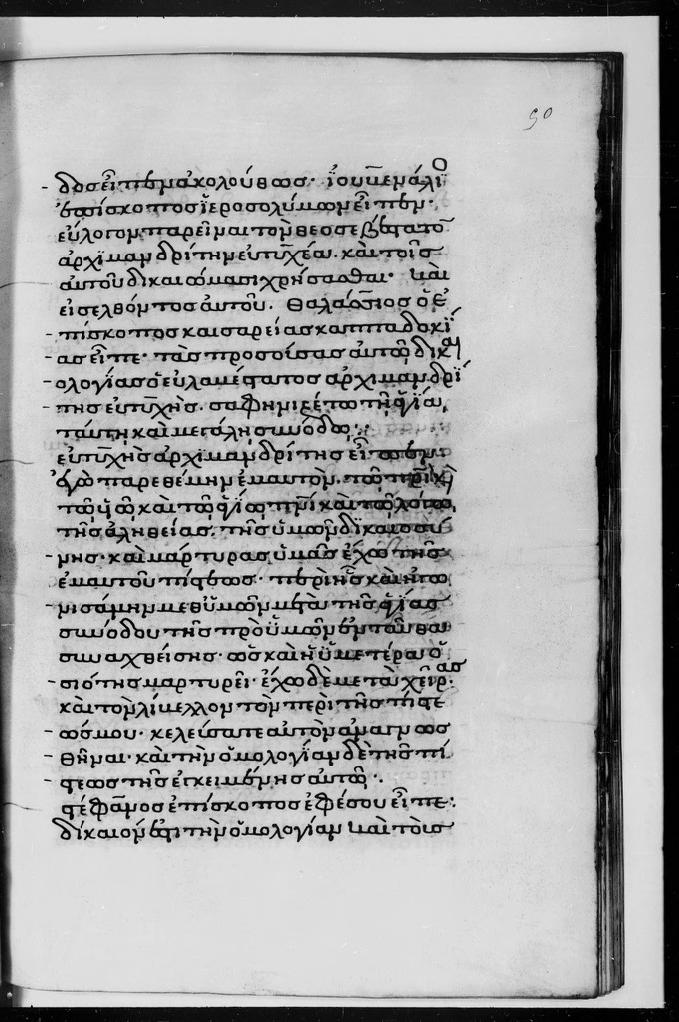 90
δος εἶπεν ἀκολούθως· ἰουβενάλϊο
ἐπίσκοπος ἱεροσολύμων εἶπεν·
εὔλογον παρεῖναι τὸν θεοσεβέστατον
ἀρχιμανδρίτην εὐτυχέα· καὶ τοῖς
αὐτοῦ δικαιώμασι χρήσασθαι· καὶ
εἰσελθόντος αὐτοῦ. θαλάσσιος ὁ ἐ
πίσκοπος καισαρείας καππαδοκί
ας εἶπε· τὰς προσούσας αὐτῶ δικαι
ολογίας ὁ εὐλαβέστατος ἀρχιμανδρί
της εὐτυχὴς. σαφηνισέτω τῆ ἁγία
ταύτη καὶ μεγάλη συνόδω:
εὐτυχὴς ἀρχιμανδρίτης εἶπεν·
ἐγὼ παρεθέμην ἐμαυτὸν. τῶ πρὶ καὶ
τῶ υἱῶ καὶ τῶ ἁγίω πνὶ καὶ τῶ λόγω
τῆς ἀληθείας. τῆς ὑμῶν δικαιοσύ
νης· καὶ μάρτυρας ὑμᾶς ἔχω τῆς
ἐμαυτοῦ πίστεως· περὶ ἧς καὶ ἠγω
νισάμην μεθ ὑμῶν μετὰ τῆς ἁγίας
συνόδου τῆς πρὸ ὑμῶν ἐνταῦθα
συναχθείσης· ὡς καὶ ἡ ὑμετέρα ὁ
σιότης μαρτυρεῖ· ἔχω δὲ μετὰ χεῖρας.
καὶ τὸν λίβελλον τὸν περὶ τῆς πίστε
ώς μου· κελεύσατε αὐτὸν ἀναγνωσ
θῆναι· καὶ τὴν ὁμολογίαν δὲ τῆς πί
στεως τῆς ἐγκειμένης αὐτῶ·.
στέφανος ἐπίσκοπος ἐφέσου εἶπε:
δίκαιον ἐστι τὴν ὁμολογίαν καὶ τοῖς